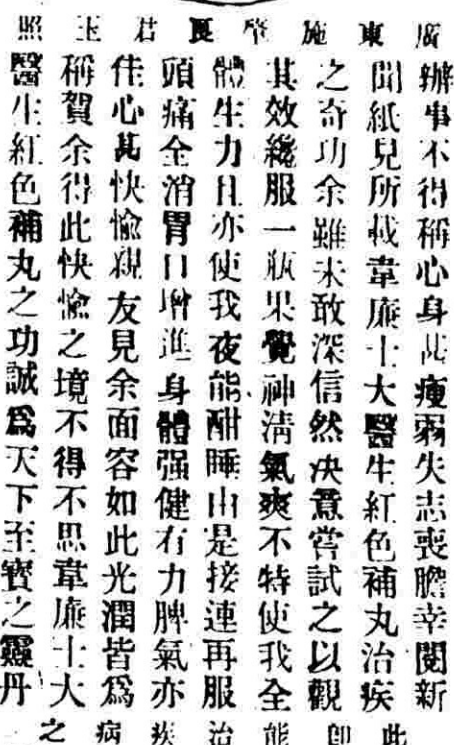 廣東施肇良君玉照
辦事不得稱心身甚瘦弱失志喪膽幸閱新
聞紙見所載韋廉士大醫生紅色補丸治疾
之奇功余雖未敢深信然决意嘗試之以觀
其效纔服一瓶果覺神清氣爽不特使我全
體生力且亦使我夜能酣睡由是接連再服
頭痛全消胃口增進身體强健有力脾氣亦
佳心甚快愉親友見余面容如此光潤皆爲
稱賀余得此快愉之境不得不思韋廉士大
醫生紅色補丸之功誠爲天下至寳之靈丹
此即能治疾病之